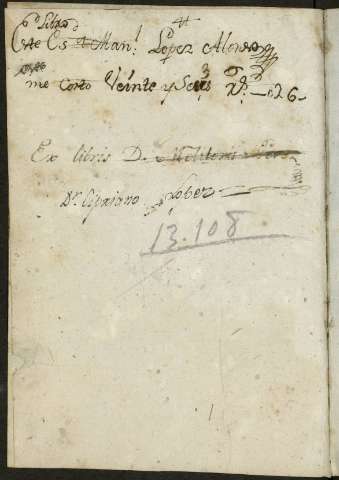 Libro
Este Es de Man.l Lopez Alonso
me Costo Veinte y Seis R.s — 26 —
Ex libris D.
Dr. Cipriano Lopez
13.108